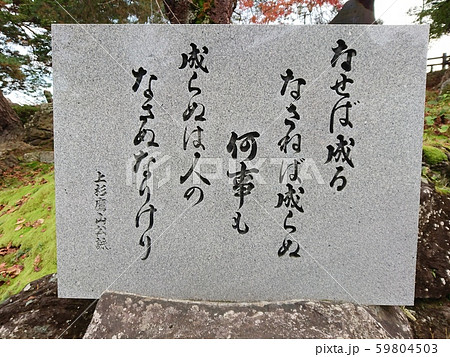 なせば成る
なさねば成らぬ
何事も
成らぬは人の
なさぬなりけり
上杉鷹山公
PIXTA
pixta.jp - 59804503